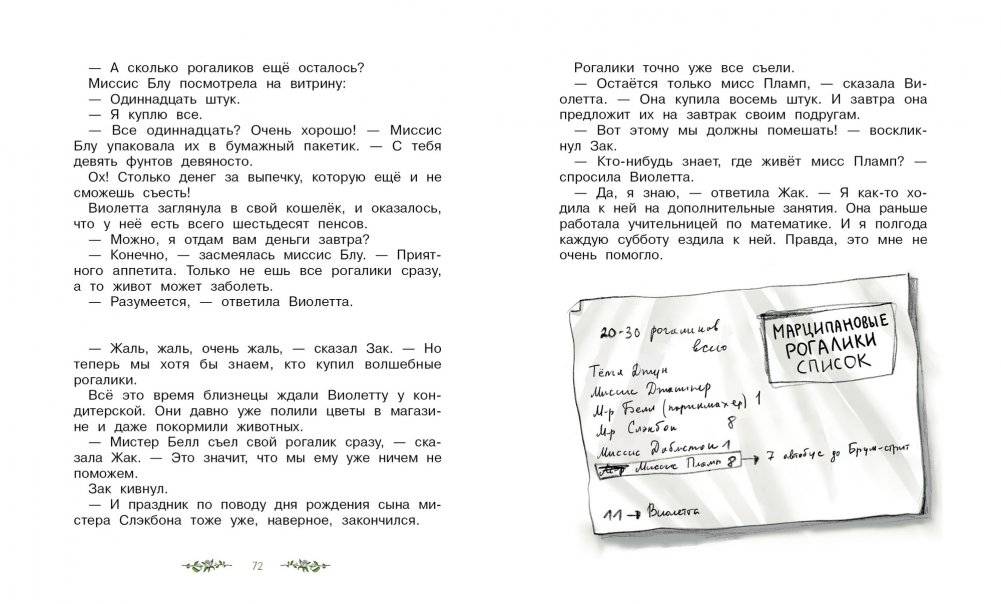 — А сколько рогаликов ещё осталось?
Миссис Блу посмотрела на витрину:
— Одиннадцать штук.
— Я куплю все.
— Все одиннадцать? Очень хорошо! — Миссис
Блу упаковала их в бумажный пакетик. — С тебя
девять фунтов девяносто.
Ох! Столько денег за выпечку, которую ещё и не
сможешь съесть!
Виолетта заглянула в свой кошелёк, и оказалось,
что у неё есть всего шестьдесят пенсов.
— Можно, я отдам вам деньги завтра?
— Конечно, — засмеялась миссис Блу. — Прият-
ного аппетита. Только не ешь все рогалики сразу,
а то живот может заболеть.
— Разумеется, — ответила Виолетта.
— Жаль, жаль, очень жаль, — сказал Зак. — Но
теперь мы хотя бы знаем, кто купил волшебные
рогалики.
Всё это время близнецы ждали Виолетту у кон-
дитерской. Они давно уже полили цветы в магази-
не и даже покормили животных.
— Мистер Белл съел свой рогалик сразу, — ска-
зала Жак. — Это значит, что мы ему уже ничем не
поможем.
Зак кивнул.
— И праздник по поводу дня рождения сына ми-
стера Слэкбона тоже уже, наверное, закончился.
72
Рогалики точно уже все съели.
— Остаётся только мисс Пламп, — сказала Ви-
олетта. — Она купила восемь штук. И завтра она
предложит их на завтрак своим подругам.
— Вот этому мы должны помешать! — восклик-
нул Зак.
— Кто-нибудь знает, где живёт мисс Пламп? —
спросила Виолетта.
— Да, я знаю, — ответила Жак. — Я как-то хо-
дила к ней на дополнительные занятия. Она раньше
работала учительницей по математике. И я полгода
каждую субботу ездила к ней. Правда, это мне не
очень помогло.
МАРЦИПАНОВЫЕ
РОГАЛИКИ
СПИСОК
20-30 рогаликов
всего
Тётя Джун
Миссис Джаспер
М-р Белл (парикмахер) 1
М-р Слэкбон 8
Миссис 1
Миссис Пламп 8 → 7 автобус до Брум-стрит
11 → Виолетта